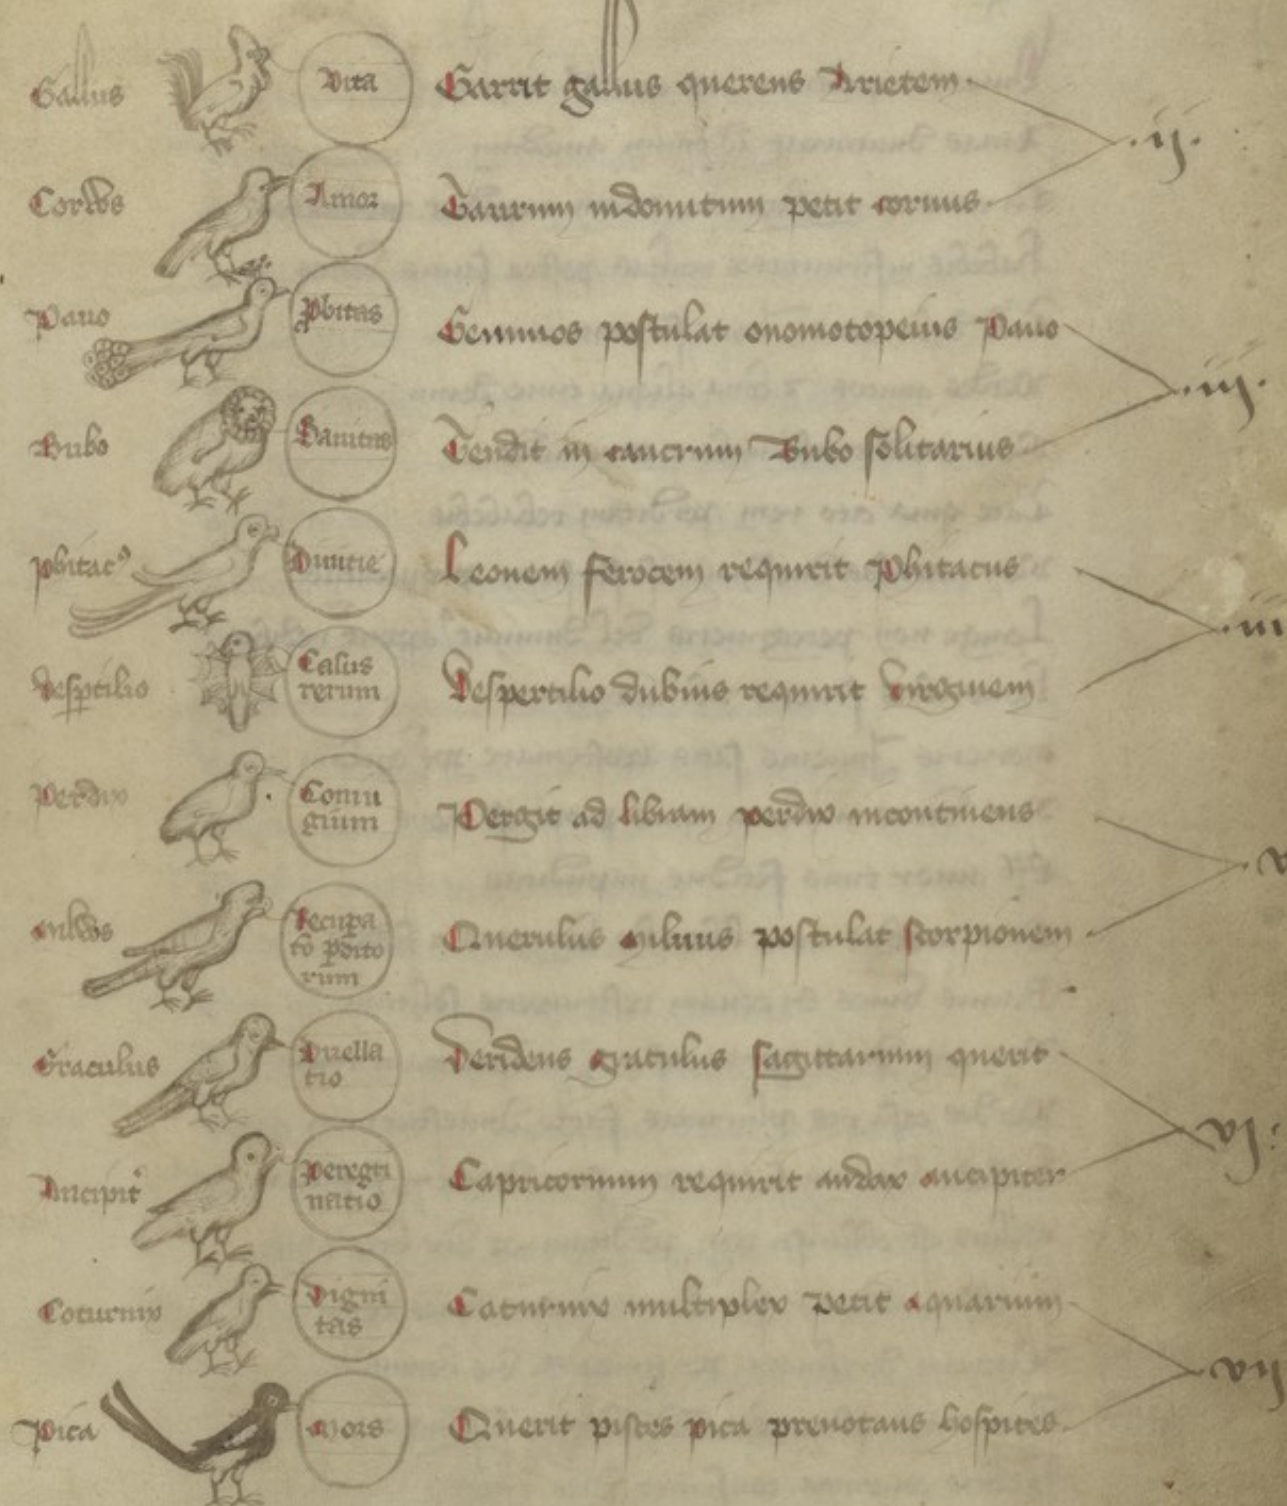 Gallus Vita Garrit gallus querens Arietem
.ij.
Corvus Amor Taurum indomitum petit corvus
Pavo pbitas Geminos postulat onomotopeius Pavo
.iij.
Bubo Sanitas Tendit in cancrum Bubo solitarius
phitacꝰ Divitie Leonem ferocem requirit Phitacus
.iiı
vesptilio Casus
rerum Vespertilio dubius requirit virginem
Perdix Coniu
gium Pergit ad libram perdix incontinens
v
Milvus Recupa
to pdito
rum Querulus Milvus postulat scorpionem
Graculus Duella
tio Deridens graculus sagittarium querit
vj.
Ancipit Peregri
natio Capricornum requirit audax ancipiter
Coturnix Digni
tas Caturnix multiplex petit aquarium
vij
Pica Mors Querit pisces pica prenotans hospites